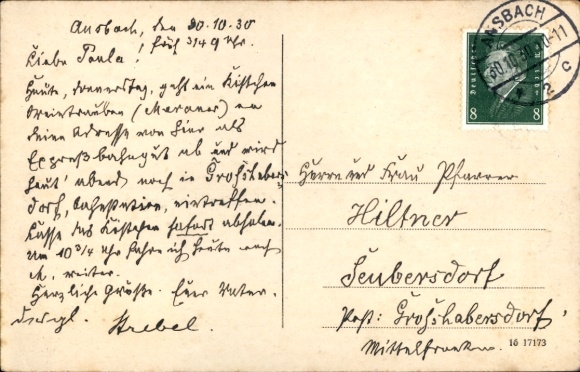 Ansbach, den 30.10.30
früh 3/4 9 Uhr.
Liebe Paula!
Heute, donnerstag, geht ein Kistchen
Weintrauben (Meraner) an
deine Adresse von hier als
Expreßbahngut ab und wird
heut' abend noch in Großhabers-
dorf, Bahnstation, eintreffen.
Lasse das Kistchen sofort abholen.
Um 10 3/4 Uhr fahre ich heute nach
M. weiter.
Herzliche Grüße. Euer Vater.
Strebel.
Herrn und Frau Pfarrer
Hiltner
Seubersdorf
Post: Großhabersdorf
Mittelfranken.
ANSBACH
30.10.30
10-11
* 2 c
Deutsches Reich
8 8
16 17173